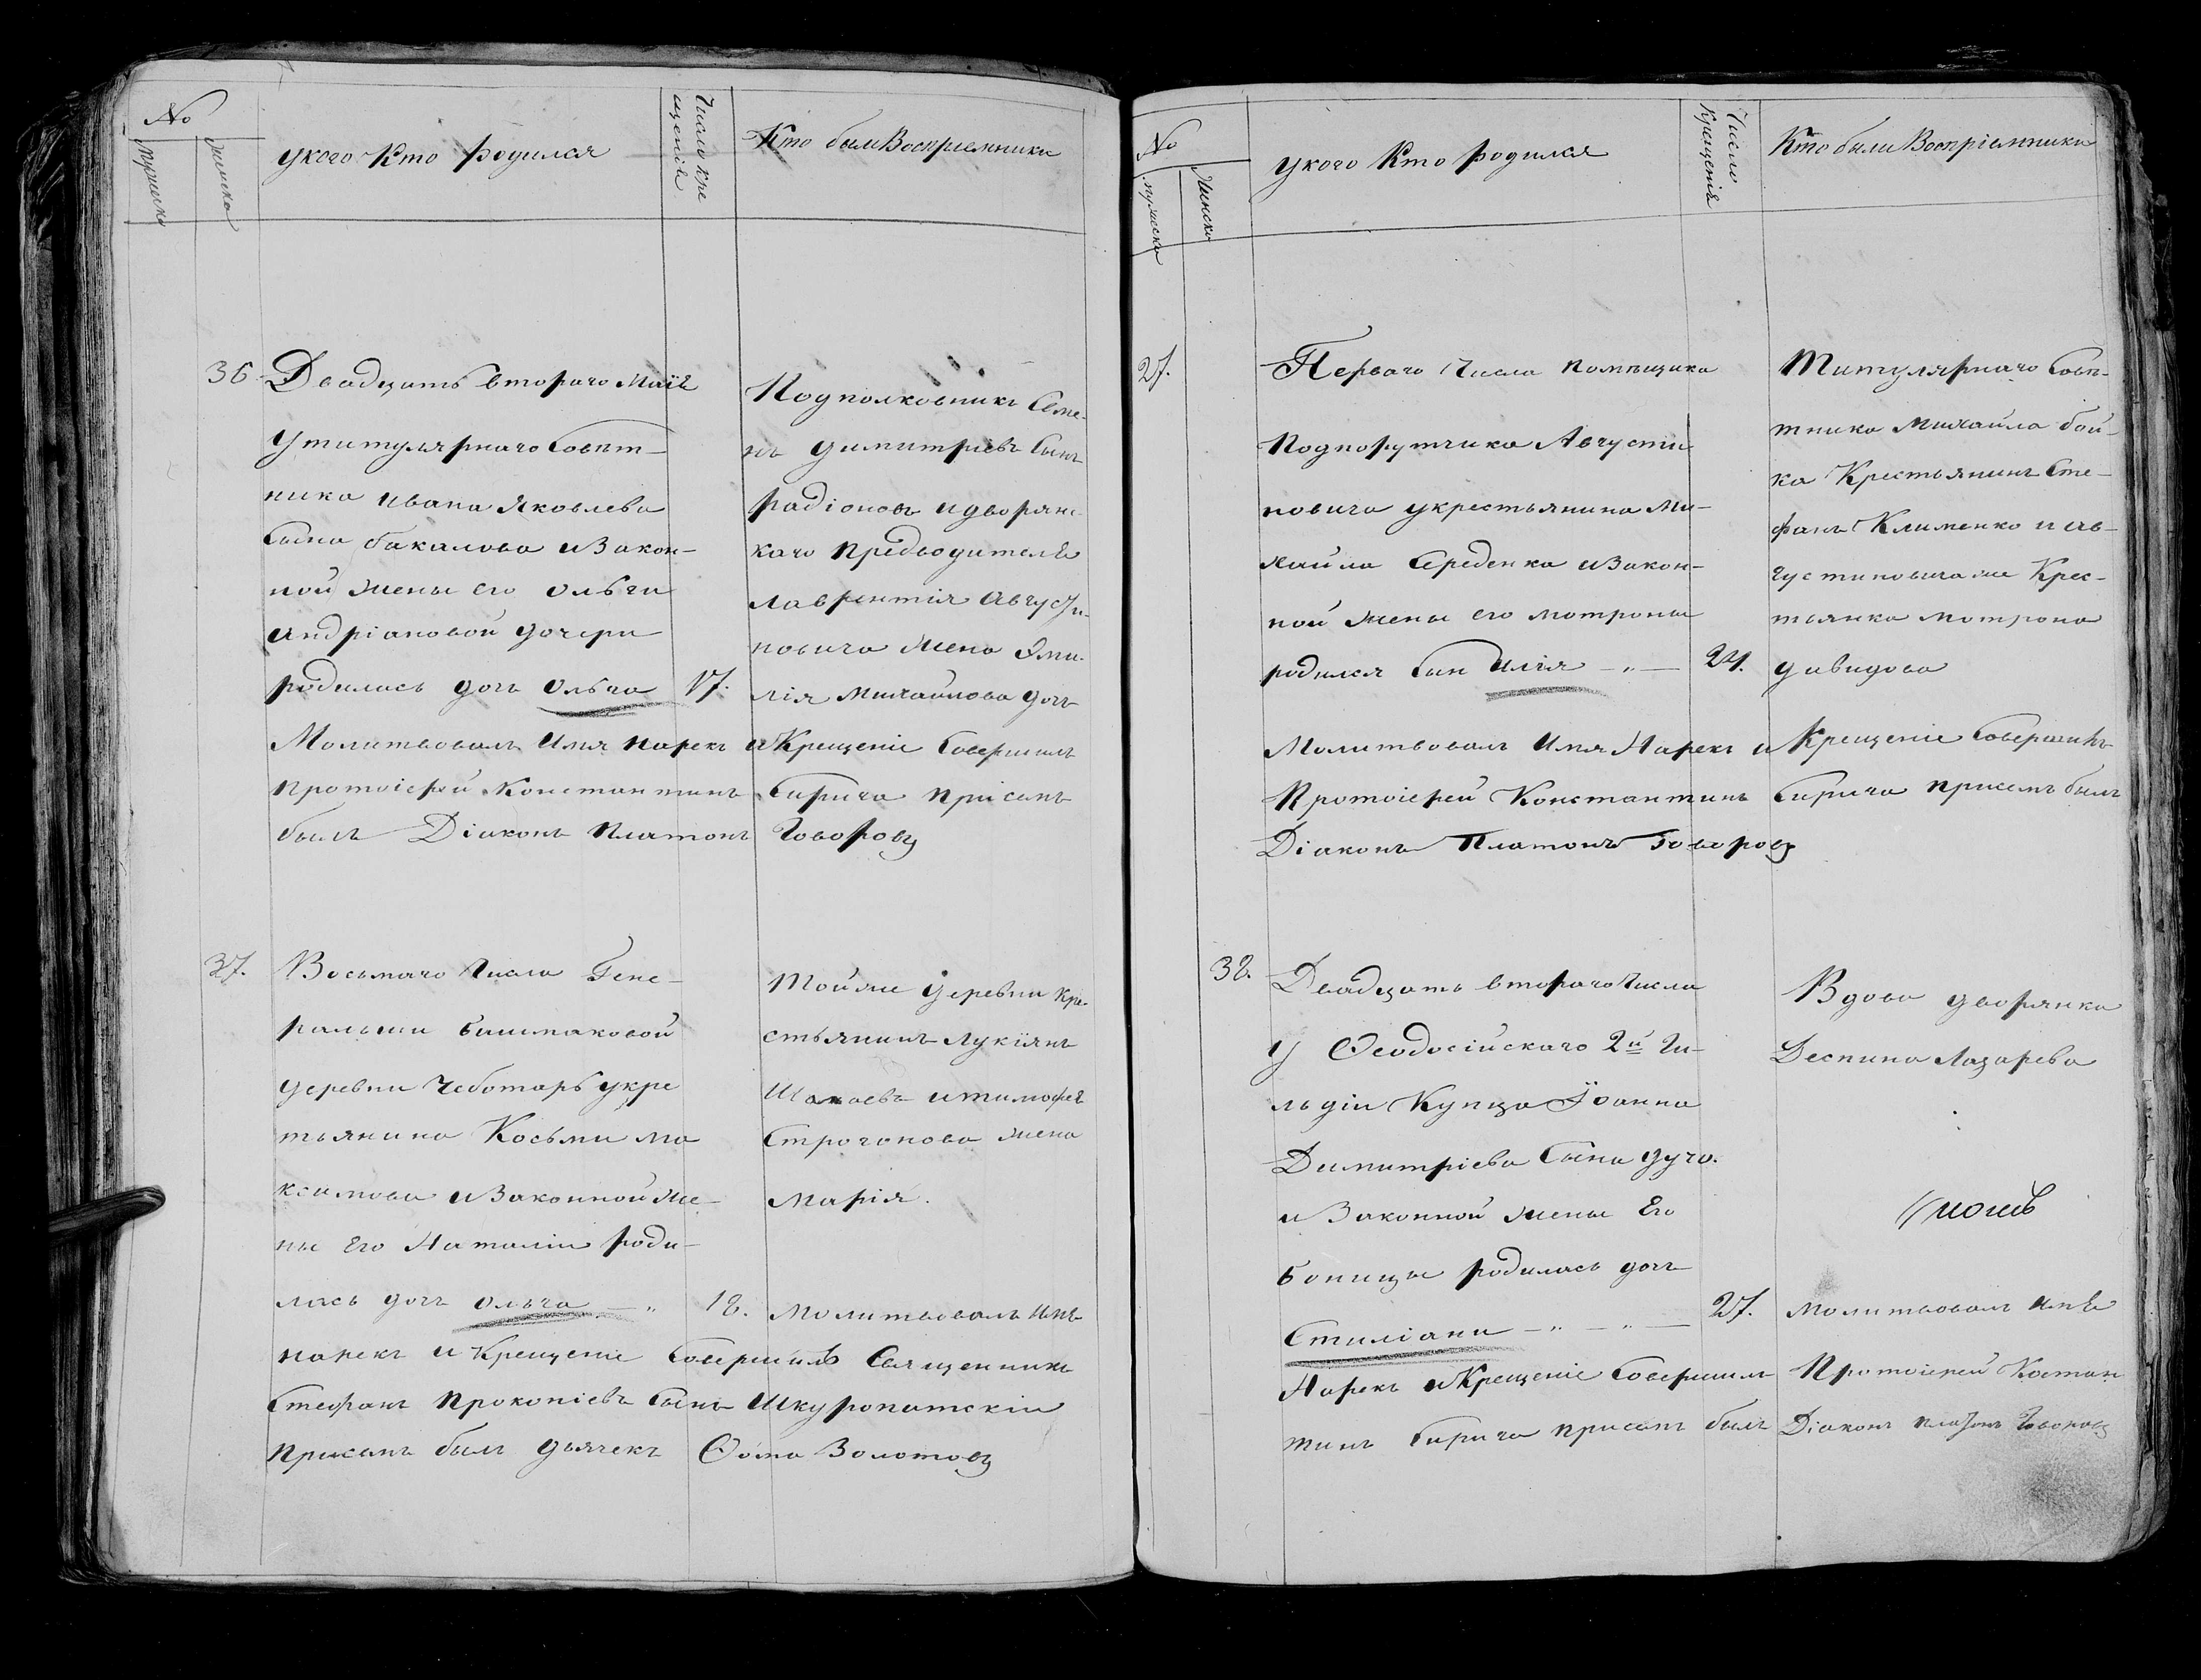 №
мужеска
женска
укого Кто родился
Число кре
щенія
Кто были Восприемники
36
Двадцать втораго Маія
У титулярнаго Совѣт-
ника ивана Яковлева
Сына бакалова и Закон-
ной жены его Ольги
андріановой дочери
родилась дочь Ольга 17.
Подполковникъ Семе-
нъ димитріевъ Сынъ
радіоновъ и дворянс-
каго предводителя
лаврентія авгусfи-
новича жена Эми-
лія михайлова дочь
Молитвовалъ имя нарекъ и Крещеніе Совершилъ
протоіерей Константинъ Сирига присемъ
былъ Діаконъ платонъ Говоровъ
37.
Восьмаго Числа Гене-
ральши башмаковой
деревни Чеботаръ укре
тьянина Косьми ма
ксимова и Законной Же-
ны Его Наталіи роди-
лась дочь ольга — „ 18.
Тойже деревни кре-
стьянинъ лукіянъ
Шакаевъ и тимофея
Строгонова жена
Марія.
молитвовалъ имя
нарекъ и Крещеніе Совершилъ Священникъ
Стефанъ прокопіевъ Сынъ Шкуропатскіи
присемъ былъ дьячекъ Ѳома Золотовъ
№
мужеска
Женска
укого Кто родился
Число
Крещенія
Кто были Воспріемники
27.
Перваго Числа помѣщика
Подпорутчика Августи
новича укрестьянина Ми-
хайла Середенка и Закон-
ной жены его мотроны
родился Сын Илія — „ — 24.
Титулярнаго Совѣ-
тника михайла бой-
ка Крестьянинъ Сте-
фанъ Клименко и ав-
густиновича же Крес-
тьянка мотрона
давидова
Молитвовалъ Имя Нарекъ и Крещеніе Совершилъ
Протоіерей Константинъ Сирига присемъ былъ
Діаконъ Платонъ Говоровъ
38.
Двадцать втораго Числа
У Ѳеодосійскаго 2й Ги-
льдіи Купца Іоанна
Димитріева Сына дуго.
и Законной жены Его
боницы родилась дочь
Стиліани — „ — „ — 27.
Вдова дворянка
Деспина Лазарева
молитвовалъ имя
Нарекъ и Крещеніе Совершилъ Протоіерей Костан
тинъ Сирига присемъ былъ Діаконъ плаfонъ Говоровъ